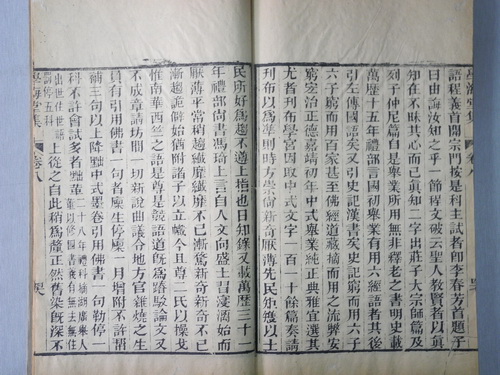 學海堂集
卷八
語程義首開宗門按是科主試者即李春芳首題子
曰由誨汝知之乎一節程文破云聖人教賢者以真
知在不昧其心而已真知二字出莊子大宗師篇及
列子仲尼篇自是舉業所用無非釋老之書明史載
萬歷十五年禮部言國初舉業有用六經語者其後
引左傳國語矣又引史記漢書矣史記窮而用六子
六子窮而用百家甚至佛經道藏摘而用之流弊安
窮宏治正德嘉靖初年中式舉業純正典雅宜選其
尤者刊布學宮因取中式文字一百一十餘篇奏請
刊布以爲準則時方崇尚新奇厭薄先民矩矱以士
民所好爲趨不遵上指也日知錄又載萬歷三十一
年禮部尚書馮琦上言自人文向盛士習浸漓始而
厭薄平常稍趨纖靡纖靡不已漸騖新奇新奇不已
漸趨詭僻始猶附諸子以立幟今且尊二氏以操戈
惟南華西竺之語是尊是競語道既爲踳駁論文又
不成章請坊間一切新說曲議令地方官雜燒之生
員有引用佛書一句者廩生停廩一月增附不許幫
補三句以上降黜中式墨卷引用佛書一句勒停一
科不許會試多者黜革
出世住世語
罰停五科
上從之自此稍爲釐正然舊染既深不
學海堂集
卷八